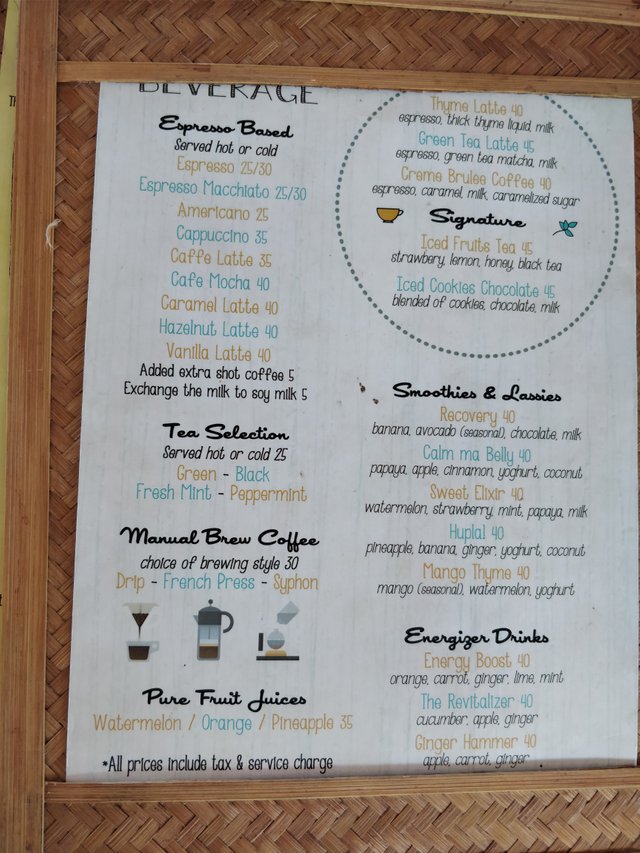 BEVERAGE
Espresso Based
Served hot or cold
Espresso 25/30
Espresso Macchiato 25/30
Americano 25
Cappuccino 35
Caffe Latte 35
Cafe Mocha 40
Caramel Latte 40
Hazelnut Latte 40
Vanilla Latte 40
Added extra shot coffee 5
Exchange the milk to soy milk 5
Tea Selection
Served hot or cold 25
Green - Black
Fresh Mint - Peppermint
Manual Brew Coffee
choice of brewing style 30
Drip - French Press - Syphon
Pure Fruit Juices
Watermelon / Orange / Pineapple 35
*All prices include tax & service charge
Thyme Latte 40
espresso, thick thyme liquid, milk
Green Tea Latte 45
espresso, green tea matcha, milk
Creme Brulee Coffee 40
espresso, caramel, milk, caramelized sugar
Signature
Iced Fruits Tea 45
strawbery, lemon, honey, black tea
Iced Cookies Chocolate 45
blended of cookies, chocolate, milk
Smoothies & Lassies
Recovery 40
banana, avocado (seasonal), chocolate, milk
Calm ma Belly 40
papaya, apple, cinnamon, yoghurt, coconut
Sweet Elixir 40
watermelon, strawberry, mint, papaya, milk
Huplal 40
pineapple, banana, ginger, yoghurt, coconut
Mango Thyme 40
mango (seasonal), watermelon, yoghurt
Energizer Drinks
Energy Boost 40
orange, carrot, ginger, lime, mint
The Revitalizer 40
cucumber, apple, ginger
Ginger Hammer 40
apple, carrot, ginger